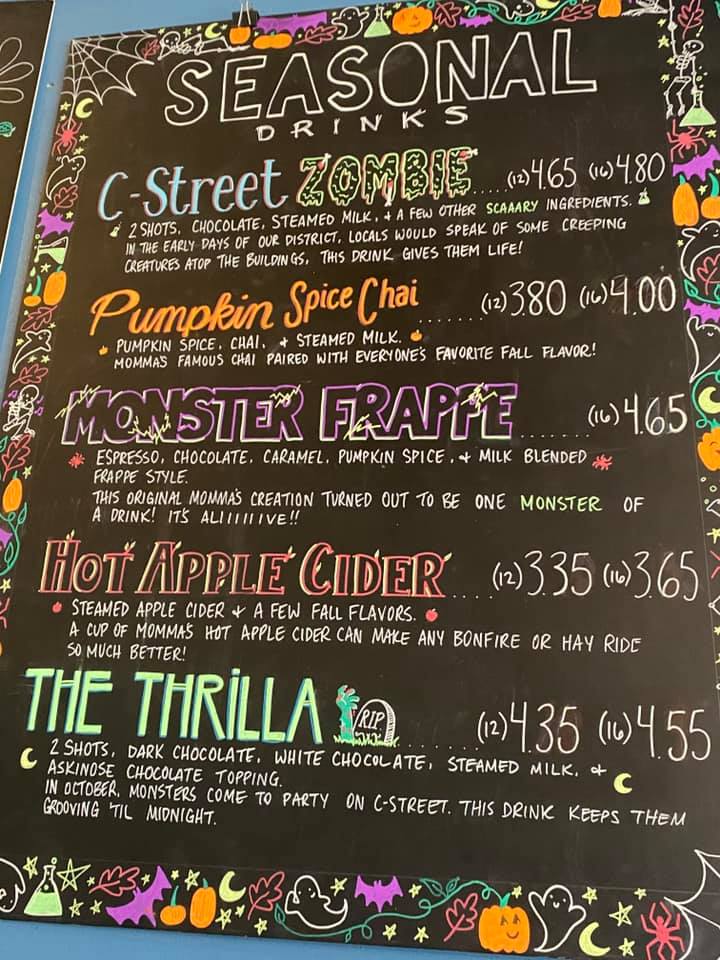 SEASONAL
DRINKS
C-Street ZOMBIE......(12)4.65 (16)4.80
2 SHOTS, CHOCOLATE, STEAMED MILK, & A FEW OTHER SCAAARY INGREDIENTS.
IN THE EARLY DAYS OF OUR DISTRICT, LOCALS WOULD SPEAK OF SOME CREEPING
CREATURES ATOP THE BUILDINGS, THIS DRINK GIVES THEM LIFE!
Pumpkin Spice Chai.......(12)3.80 (16)4.00
PUMPKIN SPICE, CHAI, & STEAMED MILK.
MOMMA'S FAMOUS CHAI PAIRED WITH EVERYONE'S FAVORITE FALL FLAVOR!
MONSTER FRAPPE.......(16)4.65
ESPRESSO, CHOCOLATE, CARAMEL, PUMPKIN SPICE, & MILK BLENDED
FRAPPE STYLE.
THIS ORIGINAL MOMMA'S CREATION TURNED OUT TO BE ONE MONSTER OF
A DRINK! IT'S ALIIIIIIVE!!
HOT APPLE CIDER....(12)3.35 (16)3.65
STEAMED APPLE CIDER & A FEW FALL FLAVORS.
A CUP OF MOMMA'S HOT APPLE CIDER CAN MAKE ANY BONFIRE OR HAY RIDE
SO MUCH BETTER!
THE THRiLLA RIP.......(12)4.35 (16)4.55
2 SHOTS, DARK CHOCOLATE, WHITE CHOCOLATE, STEAMED MILK, &
ASKINOSE CHOCOLATE TOPPING.
IN OCTOBER, MONSTERS COME TO PARTY ON C-STREET. THIS DRINK KEEPS THEM
GROOVING 'TIL MIDNIGHT.